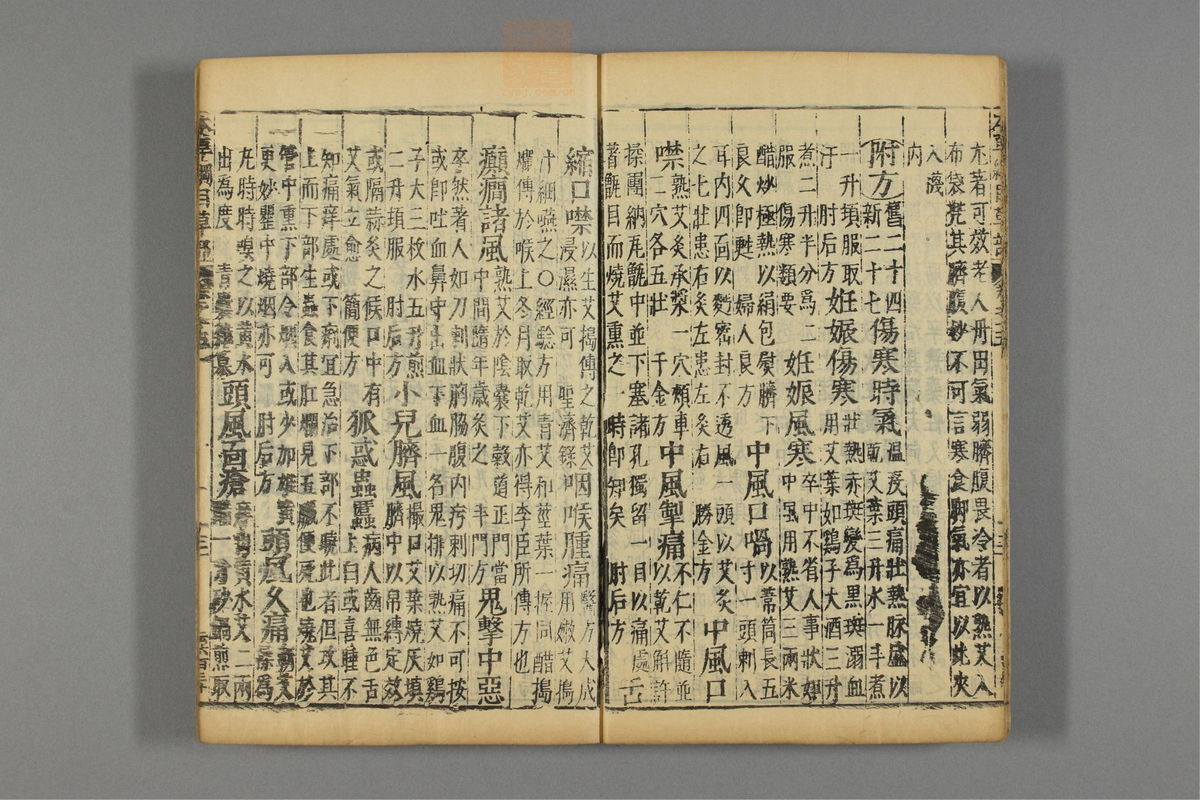 亦著可效老人丹田氣弱臍腹畏冷者以熟艾入
布袋兜其臍腹妙不可言寒食脚氣亦宜以此夾
入襪内
附方舊二十四新二十七傷寒時氣溫疫頭痛壯熱脉盛以乾艾葉三升水一斗煮
一升頓服取汗 肘后方妊娠傷寒壯熱赤斑變爲黑斑溺血用艾葉如鷄子大酒三升
煮二升半分爲二服 傷寒類要妊娠風寒卒中不省人事狀如中風用熟艾三兩米
醋炒極熱以絹包熨臍下良久即甦 婦人良方中風口喎以葦筒長五寸一頭刺入
耳内四面以麪密封不透風一頭以艾灸之七壯患右灸左患左灸右 勝金方中風口
噤熟艾灸承漿一穴頰車二穴各五壯 千金方中風掣痛不仁不隨並以乾艾斛許
揉團納瓦甑中並下塞諸孔獨留一目以痛處著甑目而燒艾熏之一時即知矣 肘后方舌
縮口噤以生艾搗傅之乾艾浸濕亦可 聖濟錄咽喉腫痛醫方大成用嫩艾搗
汁細嚥之○經驗方用青艾和莖葉一握同醋搗爛傅於喉上冬月取乾艾亦得李臣所傳方也
癲癇諸風熟艾於陰囊下穀道正門當中間隨年歲灸之 斗門方鬼擊中惡
卒然著人如刀刺狀胸脇腹内㽲刺切痛不可按或即吐血鼻中出血下血一名鬼排以熟艾如鷄
子大三枚水五升煎二升頓服 肘后方小兒臍風撮口艾葉燒灰填臍中以帛縛定效
或隔蒜灸之候口中有艾氣立愈 簡便方狐惑蟲䘌病人齒無色舌上白或喜睡不
知痛癢處或下痢宜急治下部不曉此者但攻其上而下部生蟲食其肛爛見五臟便死也燒艾於
管中熏下部令烟入或少加雄黃更妙罌中燒烟亦可 肘后方頭風久痛蘄艾揉爲
丸時時嗅之以黃水出為度 青囊雜纂頭風面瘡癢出黃水艾二兩醋一升砂鍋煎取